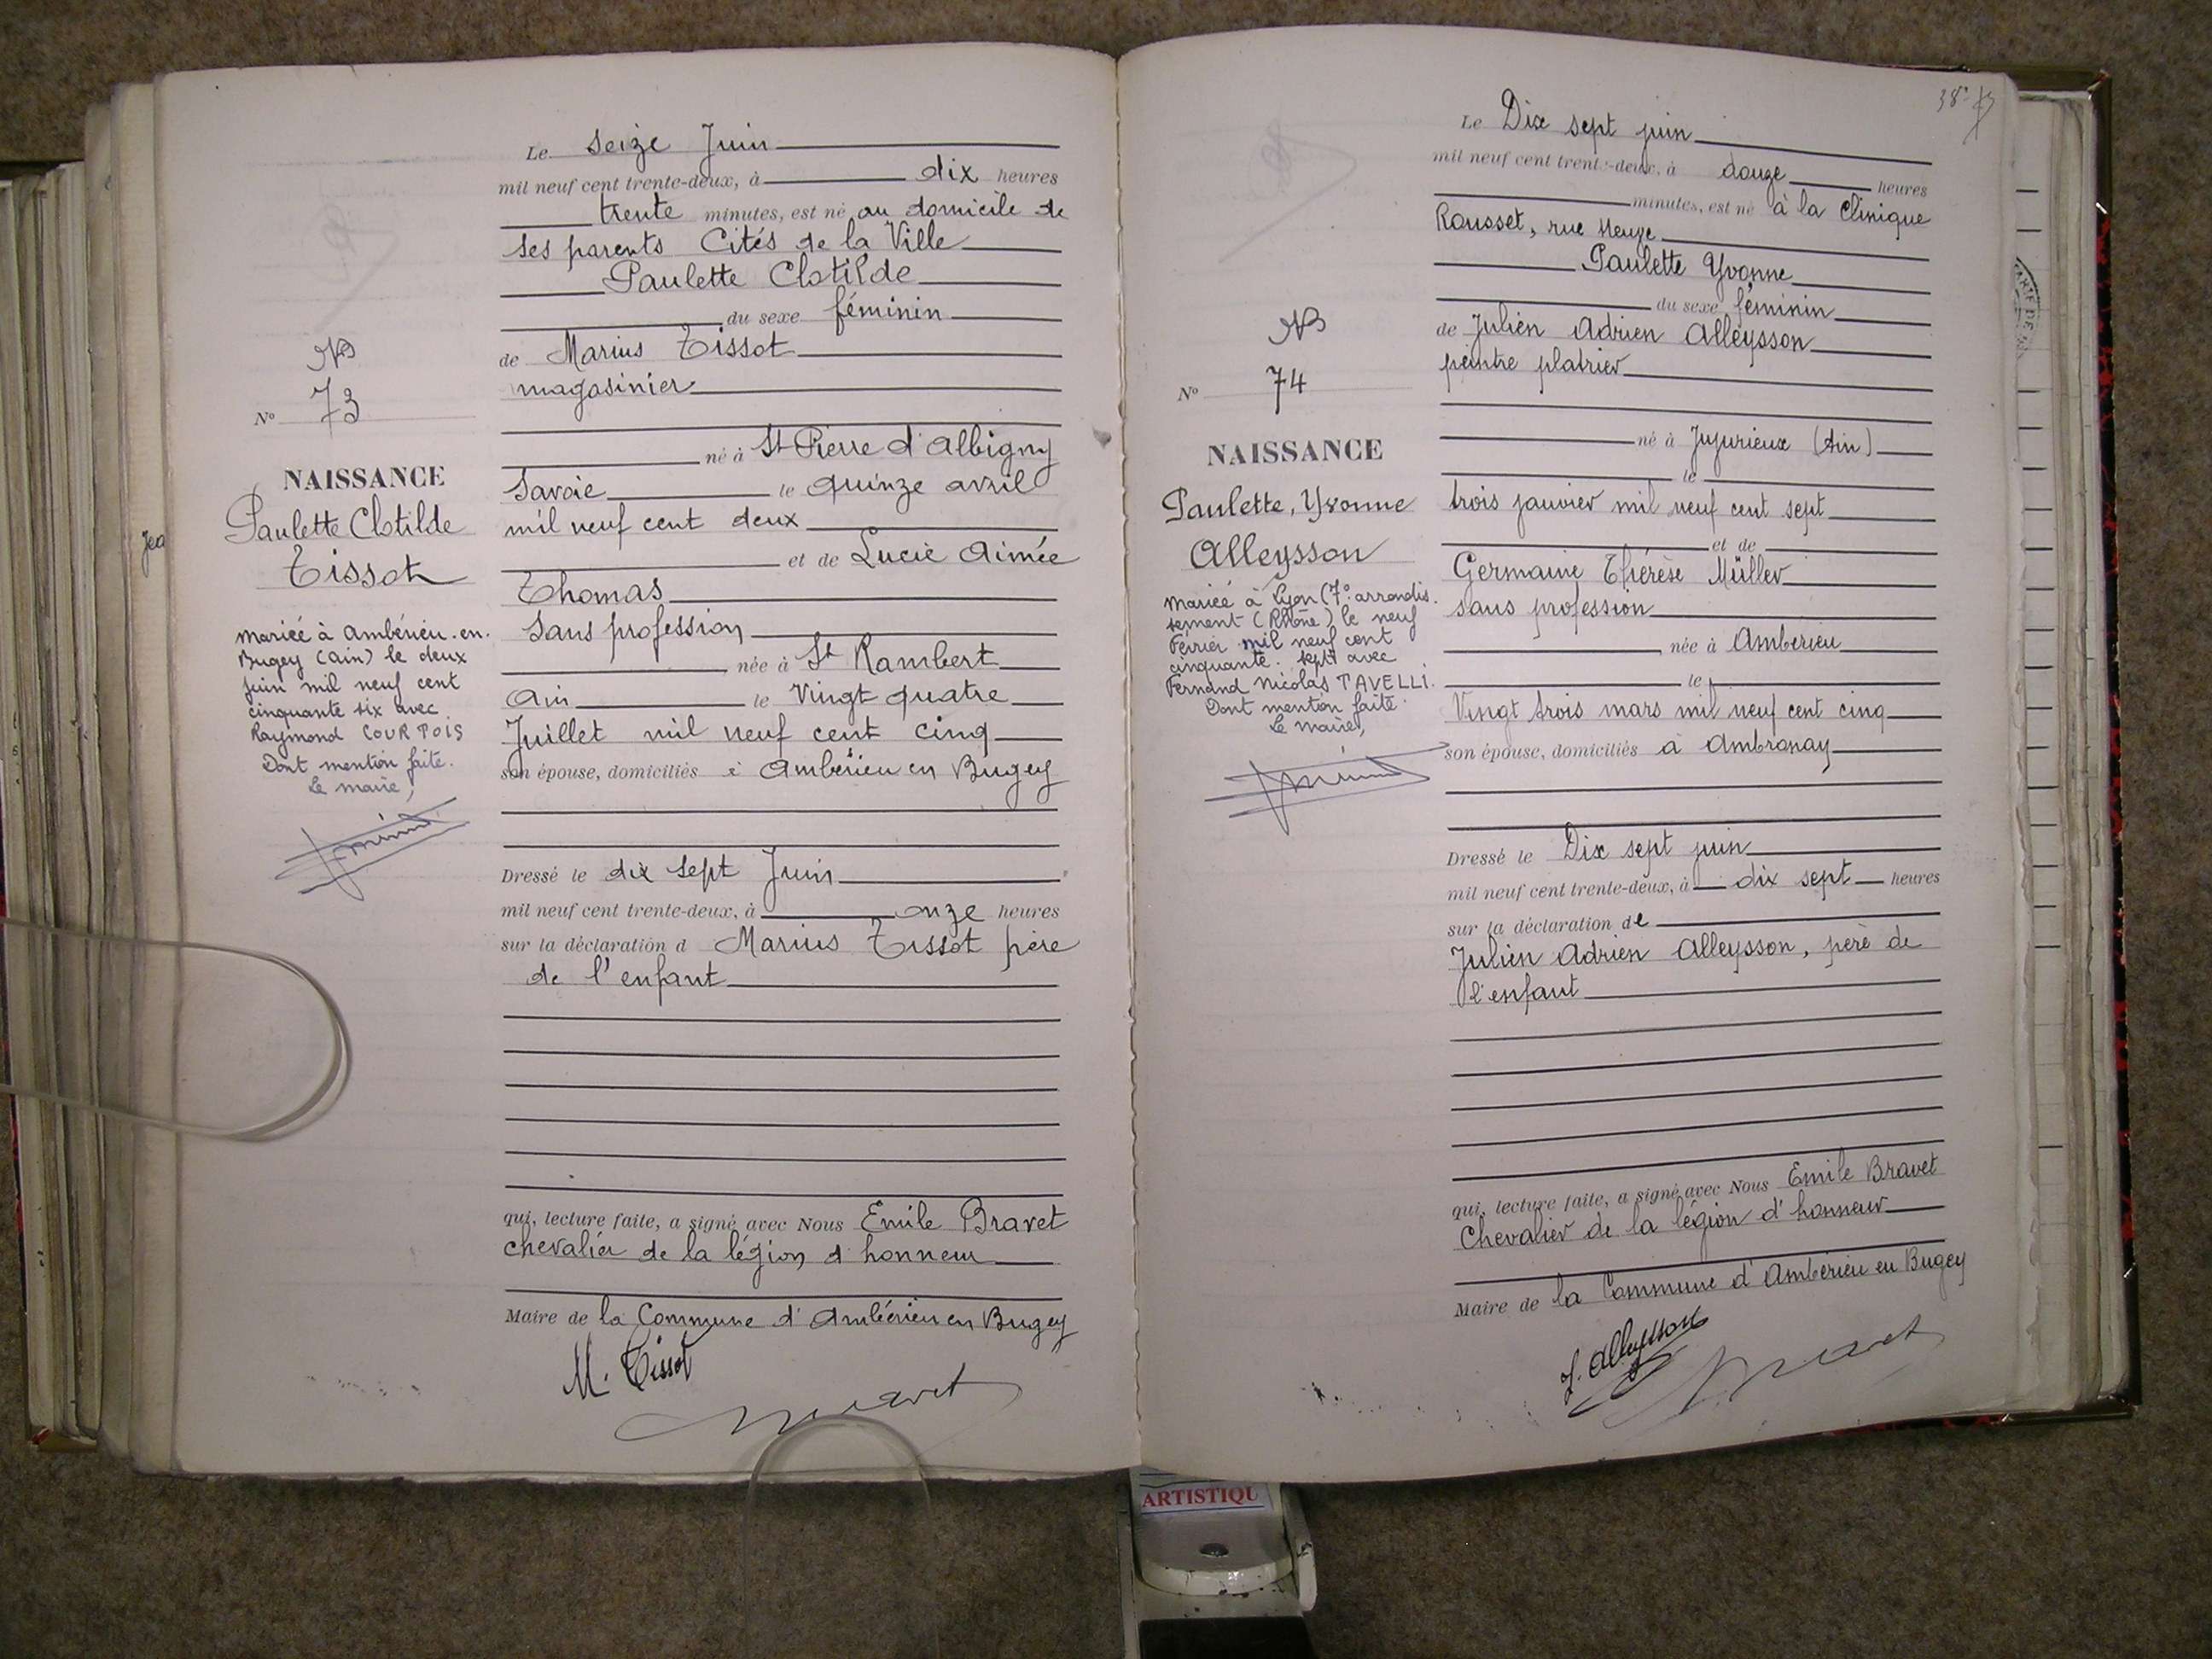 Le seize Juin
mil neuf cent trente-deux, à dix heures
trente minutes, est né au domicile de
ses parents Cités de la Ville
Paulette Clotilde
du sexe féminin
de Marius Tissot
magasinier
né à St Pierre d'Albigny
Savoie le quinze avril
mil neuf cent deux
et de Lucie Aimée
Thomas
sans profession
née à St Rambert
Ain le Vingt quatre
Juillet mil neuf cent cinq
son épouse, domiciliés à Ambérieu en Bugey
Dressé le dix sept Juin
mil neuf cent trente-deux, à onze heures
sur la déclaration d Marius Tissot père
de l'enfant
qui, lecture faite, a signé avec Nous Emile Bravet
chevalier de la légion d'honneur
Maire de la Commune d'Ambérieu en Bugey
M. Tissot
Bravet
N° 73
NAISSANCE
Paulette Clotilde
Tissot
Mariée à Ambérieu-en-
Bugey (Ain) le deux
juin mil neuf cent
cinquante six avec
Raymond COURTOIS
Dont mention faite.
Le maire,
Jea
38
Le Dix sept juin
mil neuf cent trente-deux, à douze heures
minutes, est né à la Clinique
Rousset, rue
Paulette Yvonne
du sexe féminin
de Julien Adrien Alleysson
peintre platrier
né à Jujurieux (Ain)
le
trois janvier mil neuf cent sept
et de
Germaine Thérèse Müller
sans profession
née à Ambérieu
le
Vingt trois mars mil neuf cent cinq
son épouse, domiciliés à Ambronay
Dressé le Dix sept juin
mil neuf cent trente-deux, à dix sept heures
sur la déclaration de
Julien Adrien Alleysson, père de
l'enfant
qui, lecture faite, a signé avec Nous Emile Bravet
Chevalier de la légion d'honneur
Maire de la Commune d'Ambérieu en Bugey
J. Alleysson
Bravet
N° 74
NAISSANCE
Paulette, Yvonne
Alleysson
Mariée à Lyon (7e arrondis.
sement (Rhône) le neuf
Février mil neuf cent
cinquante-sept avec
Fernand Nicolas TAVELLI.
Dont mention faite.
Le maire,
ARTISTIQU